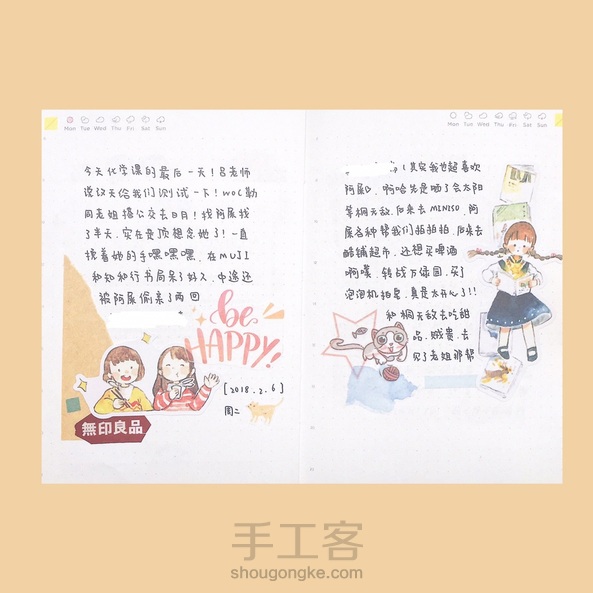 Mon Tue Wed Thu Fri Sat Sun
今天化学课的最后一天！吕老师
说议天给我们测试一下！woc勒
同老姐搭公交去日月！找阿屌找
了半天，实在是顶想念她了！一直
挠着她的手嘿嘿嘿，在MUJI
和知和行书局呆了好久，中途还
被阿屌偷亲了两回
be
HAPPY!
[2018.2.6]
周二
無印良品
Mon Tue Wed Thu Fri Sat Sun
！其实我也超喜欢
阿屌，啊哈先是晒了会太阳
等桐无敌，后来去MINISO，阿
屌各种帮我们拍拍拍，后来去
酷铺超市，还想买啤酒
啊噗，转战万绿园，买了
泡泡机拍皂，真是太开心了!!
和桐无敌去吃甜
品，贼贵，去
见了老姐
手工客
shougongke.com